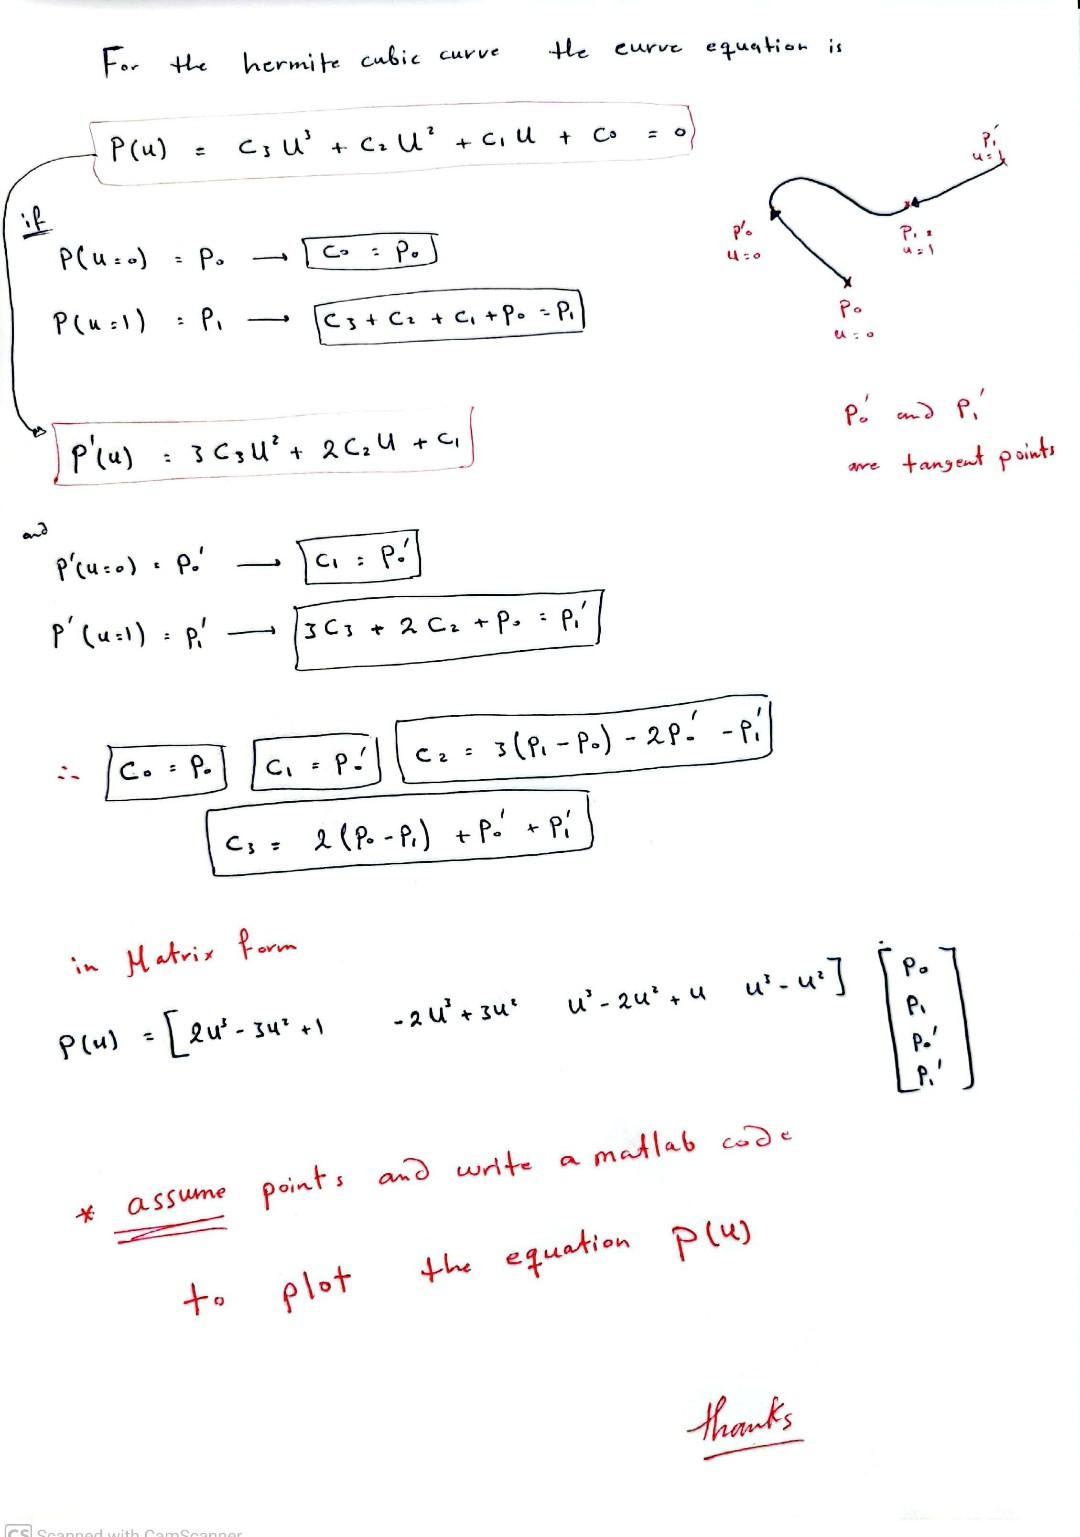 For the hermite cubic curve the curve equation is
P(u) = C₃ U³ + C₂ U² + C₁ U + C₀ = 0
if
P(u=0) = P₀ → C₀ = P₀
P(u=1) = P₁ → C₃ + C₂ + C₁ + P₀ = P₁
P₁'
u=1
P'₀
u=0
P₁ =
u=1
P₀
u=0
P₀' and P₁'
are tangent points
P'(u) = 3 C₃ U² + 2 C₂ U + C₁
and
P'(u=0) = P₀' → C₁ = P₀'
P'(u=1) = P₁' → 3 C₃ + 2 C₂ + P₀ = P₁'
∴ C₀ = P₀ C₁ = P₀' C₂ = 3(P₁ - P₀) - 2P₀' - P₁'
C₃ = 2(P₀ - P₁) + P₀' + P₁'
in Matrix form
P(u) = [2u³ - 3u² + 1 -2u³ + 3u² u³ - 2u² + u u³ - u²] [P₀
P₁
P₀'
P₁']
* assume points and write a matlab code
to plot the equation P(u)
thanks
CS Scanned with CamScanner